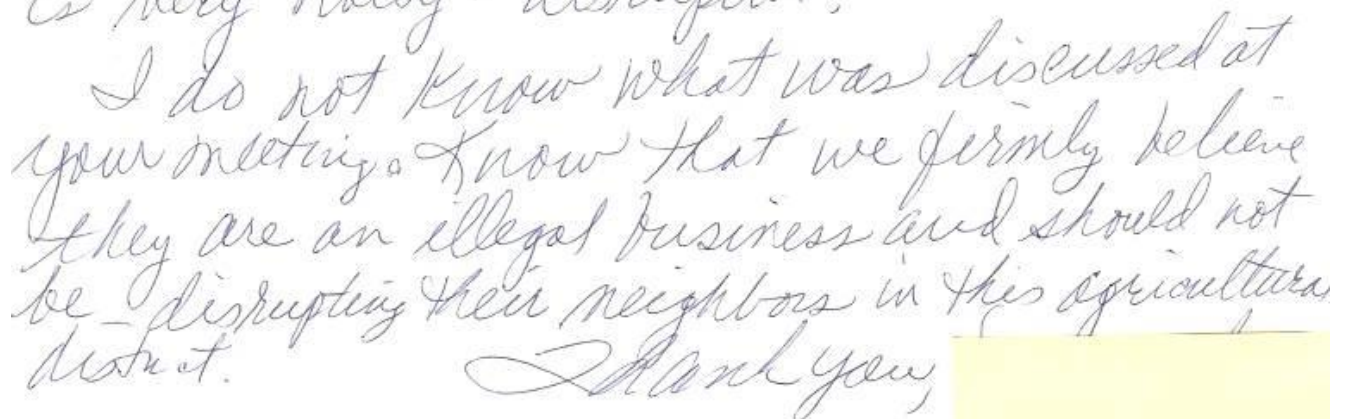 is very noisy - disruptive.
I do not know what was discussed at
your meeting. Know that we firmly believe
they are an illegal business and should not
be - disrupting their neighbors in this agricultura
district.
Thank you,